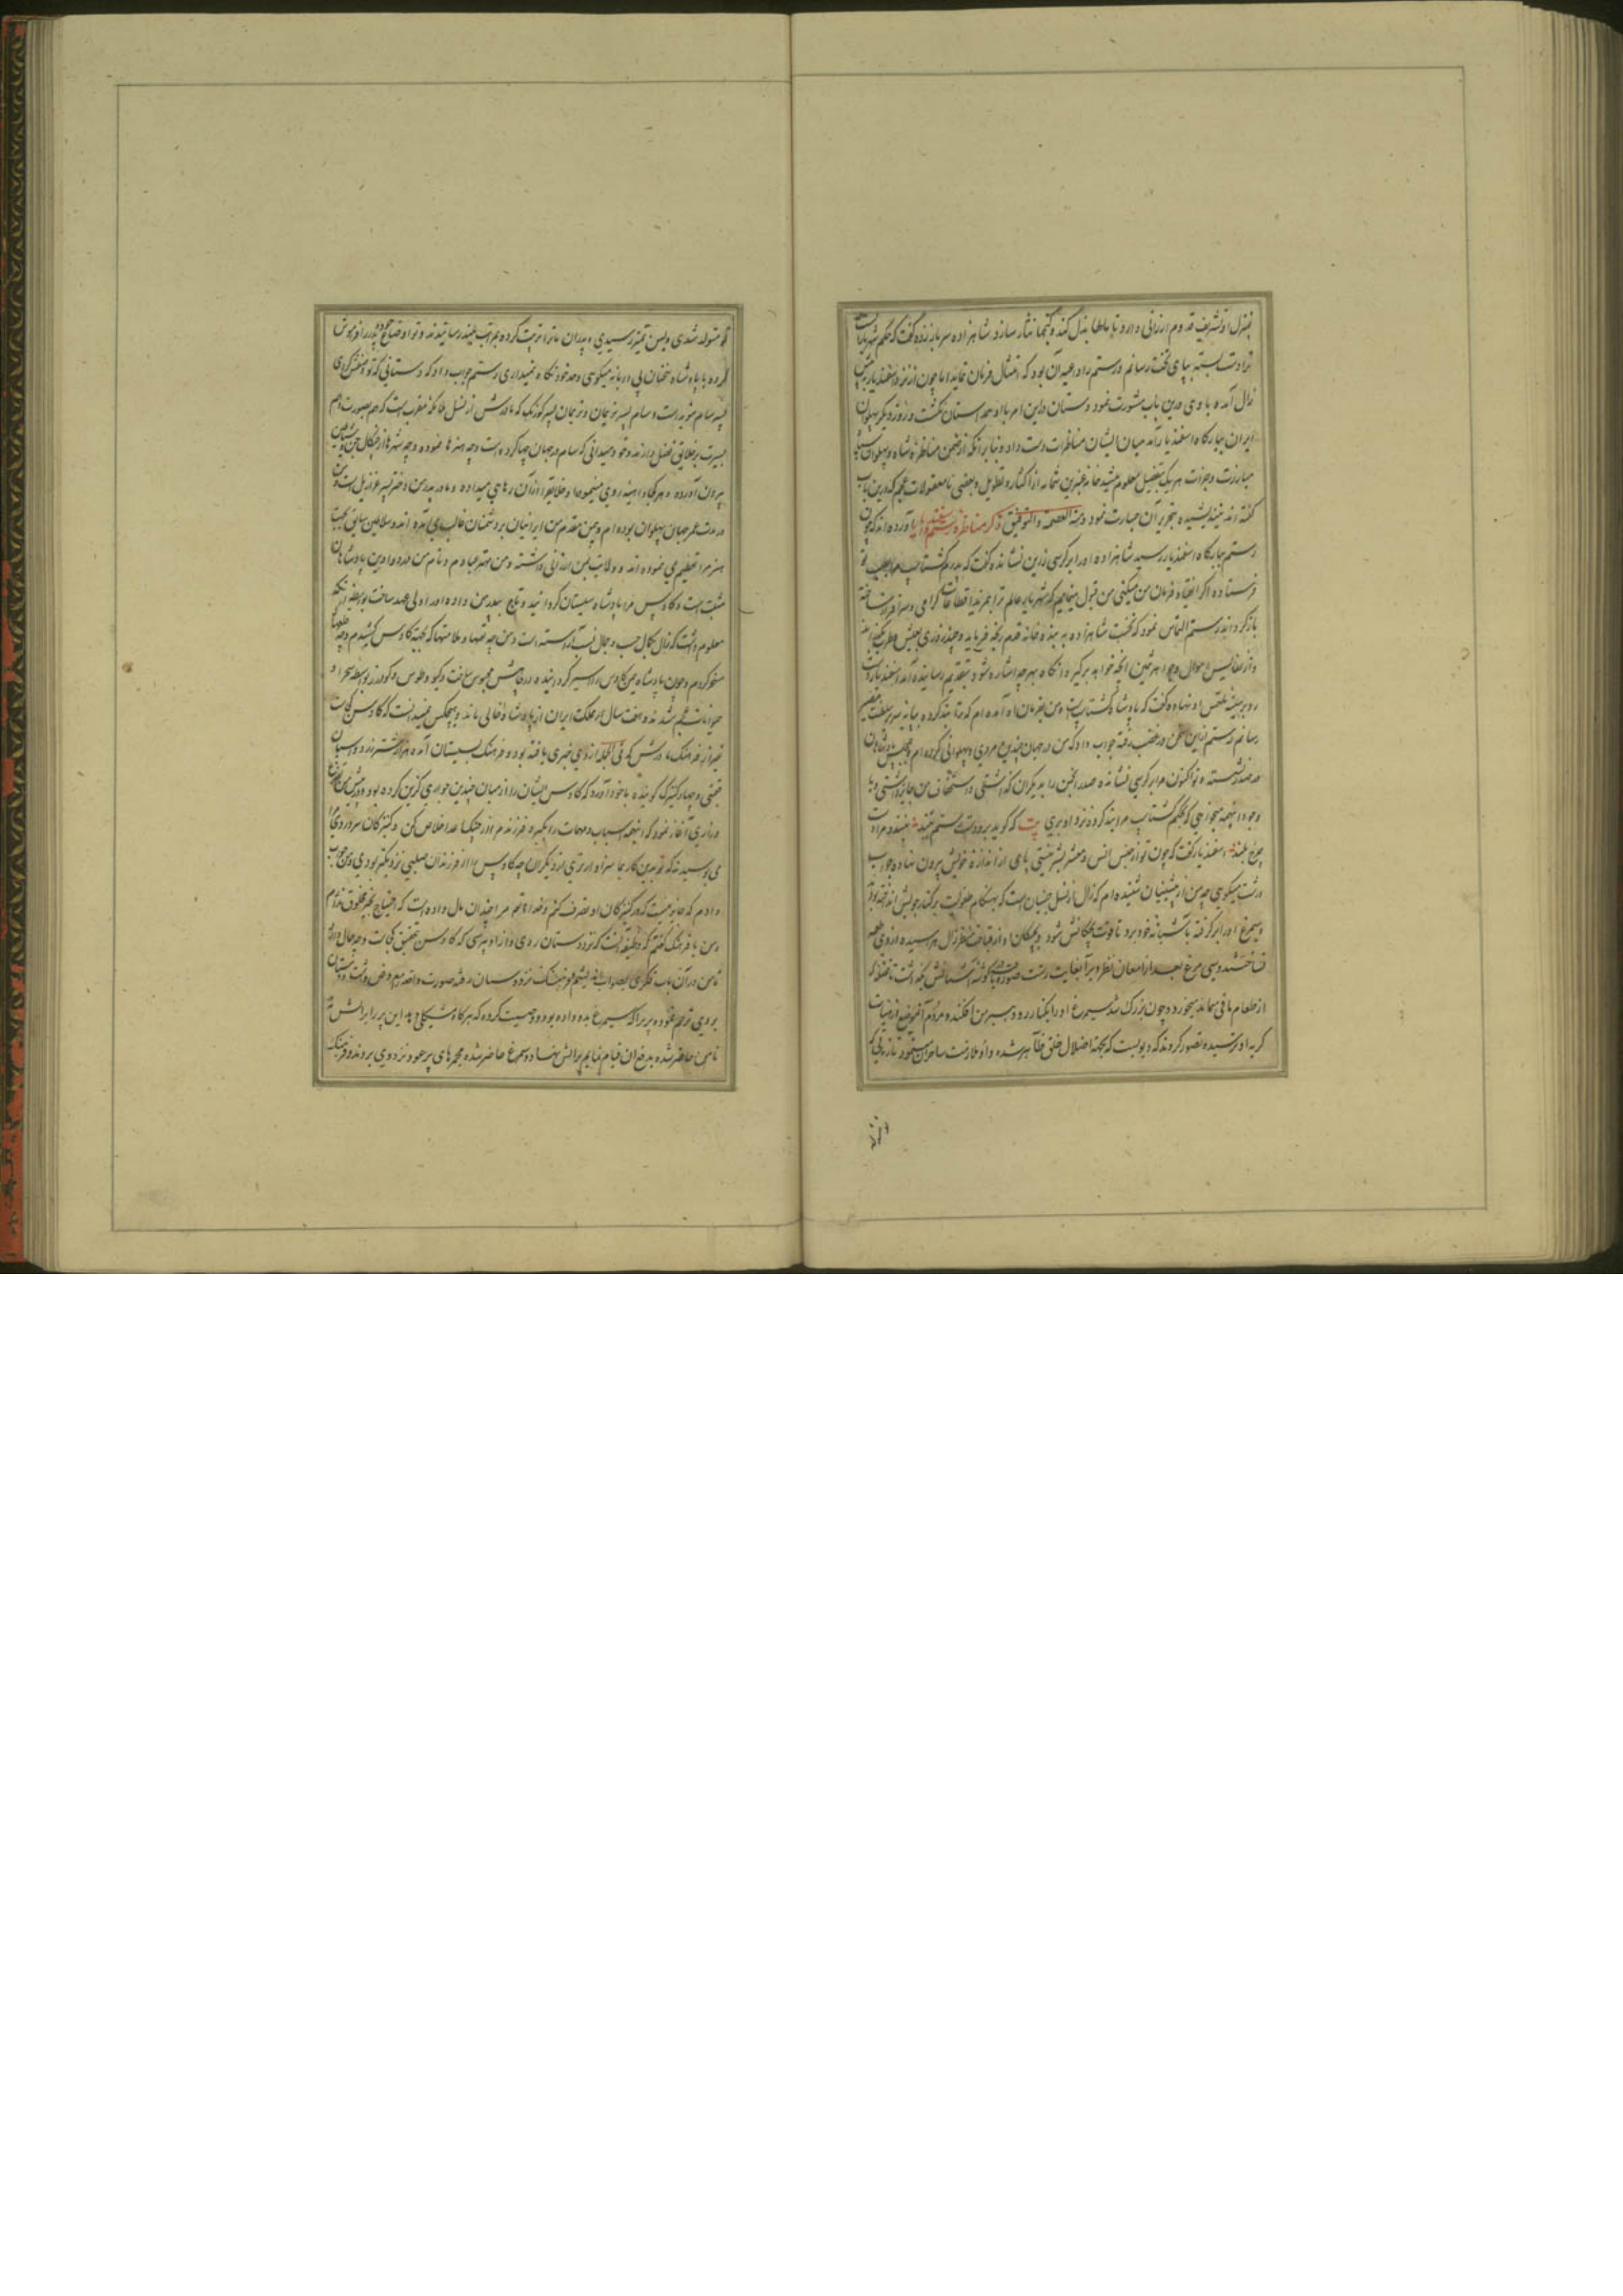 بمنزل او تشریف قدوم ارزانی دارد تا بساطها بذل کند و گنجها نثار سازد شاهزاده سر باز زده گفت که حکم شهریار است
ترا دست بسته بپای تخت رسانم و رستم را داعیه آن بود که امتثال فرمان نماید اما چون از نزد اسفندیار پیش
زال آمده با وی درین باب مشورت نمود دستان درین امر با او همداستان نگشت و روز دیگر پهلوان
ایران ببارگاه اسفندیار آمد میان ایشان مناظرات دست داد و بنابر آنکه از ضمن مناظره شاه و پهلوان سپاه
مبارزت و جرات هر یک بتفصیل معلوم میشد خامه عنبرین شمامه از اکثار و تطویل و بعضی نامعقولات عجم که درین باب
گفته اند نیندیشیده بتحریر آن جسارت نمود و منه العصمة والتوفیق ذکر مناظره رستم و اسفندیار آورده اند که چون
رستم ببارگاه اسفندیار رسید شاهزاده او را بر کرسی زرین نشانده گفت که پدرم گشتاسب مرا بطلب تو
فرستاده اگر انقیاد فرمان من میکنی من قبول مینمایم که شهریار عالم ترا بمزید اقطاعات گرامی و سرافراز ساخته
باز گرداند رستم التماس نمود که نخست شاهزاده به بنده خانه قدم رنجه فرماید و چند روزی بعیش و طرب بگذراند
و از نفایس اموال و جواهر ثمین آنچه خواهد برگیرد آنگاه بهرچه اشاره شود بتقدیم رسانیده آید اسفندیار دست
رد بر سینه ملتمس او نهاده گفت که پادشاه گشتاسب است و من بفرمان او آمده ام که ترا بند کرده بپایه سریر سلطنت مصیر
رسانم رستم ازین سخن در غضب رفته جواب داد که من در جهان چندین مردی و پهلوانی کرده ام و بمجلس پادشاهان
در صدر نشسته و تو اکنون مرا بر کرسی نشانده صدر انجمن را بدیگران گذاشتی و استخفاف من جایز داشتی و با
وجود اینهمه میخواهی که بحکم گشتاسب مرا بند کرده نزد او بری بیت که گوید برو دست رستم ببند نبندد مرا دست
چرخ بلند اسفندیار گفت که چون تو از جنس انس و معشر بشر نیستی پای از اندازه خویش بیرون نهاده جواب
درشت میگویی چه من از پیشینیان شنیده ام که زال از نسل جنیان است که بهنگام طفولیت بر کنار جویش انداخته بودند
و سیمرغ او را برگرفته بآشیانه خود برد تا قوت بچگانش شود و بچگان او از قباحت منظر زال هراسیده از وی طعمه
نساختند و سی مرغ بعد از امعان نظر ویرا بغایت زشت صورت یافته در گوشه آشیانش بگذاشت تا فضله که
از طعام باقی میماند میخورد و چون بزرگ شد سیمرغ او را بکنار رود هیرمن افکنده مردم آن موضع از هیات
کریه او ترسیده تصور کردند که دیویست که بجهت اضلال خلق ظاهر شده و او ملازمت ساحران مینمود تا از زنی که
تو متولد شدی و بسن تمیز رسیدی و پدران ما ترا تربیت کرده بمراتب بلند رسانیدند و تو اوضاع خود و پدر را فراموش
کرده با پادشاه سخنان بی ادبانه میگویی و حد خود نگاه نمیداری رستم جواب داد که دستانی که تو وصفش کردی
پسر سام موبد است و سام پسر نریمان و نریمان پسر کورنگ که مادرش از نسل ملائکه مقرب است که هم بصورت و هم
بسیرت بر خلایق فضل دارند و تو نمیدانی که سام در جهان چها کرده است و چه هنرها نموده و چه شهرها از چنگال جن و شیاطین
بیرون آورده و هر کجا داهیه روی مینموده او خلایق را از آن رهایی میداده و مادر پدر من دختر پسر عزازیل است و من
در مدت عمر جهان پهلوان بوده ام و پس مقدم من ایرانیان بر دشمنان غالب می آمده اند و سلاطین سابق بجهت
هنر مرا تعظیم می نموده اند و ولایت بمن ارزانی داشته و من مهتر عبادم و نام من در دواوین پادشاهان
مثبت است و کاوس مرا پادشاه سیستان گردانید و تاج بپدر من داده او را ولی عهد ساخت بواسطه آنکه
معلوم داشت که زال بکمال حسب و جمال نسب آراسته است و من چه تعبها و ملامتها که بجهت کاوس کشیدم و چه خلقها
مسخر کردم و چون پادشاه یمن کاوس را اسیر گردانیده در چاهش محبوس ساخت و گیو و طوس و گودرز بواسطه سحر او
حیوانات عجم شدند و هفت سال بر مملکت ایران از پادشاه خالی ماند و هیچکس نمیدانست که کاوس کجاست
غیر از فرهنگ مادرش که فی الجمله از وی خبری یافته بود و فرهنگ بسیستان آمده هزار شتر زر و اسبان
قیمتی و چهار کنیزک گوینده با خود آورد که کاوس ایشان را از میان چندین جواری گزین کرده بود و پیش من تضرع
و زاری آغاز نمود که اینهمه اسباب و مهمات را بگیر و فرزندم از چنگ اعدا خلاص کن و کنیزکان سر و روی مرا
می بوسیدند که تو بدین کارها سزاوارتری از دیگران چه کاوس را از فرزندان صلبی نزدیکتر بودی و من جواب
دادم که جایز نیست که در کنیزکان او تصرف کنم و خدای تعالی مرا چندان مال داده است که احتیاج بغیر مخلوق ندارم
و من با فرهنگ گفتم که وظیفه آنست که نزد دستان روی و از او بپرسی که کاوس بتحقیق کجاست و چه حال دارد
تا من در آن باب فکری بصواب اندیشم فرهنگ نزد دستان رفته صورت واقعه معروض داشت و دستان
بر وی ترحم نموده پر پرا که سیمرغ بدو داده بود و وصیت کرده که هر گاه مشکلی آید این پر را بر آتش نه
تا من حاضر شده بمدد آن قیام نمایم بر آتش نهاد و سیمرغ حاضر شده مجمرهای پر عود نزد وی بردند و فرهنگ